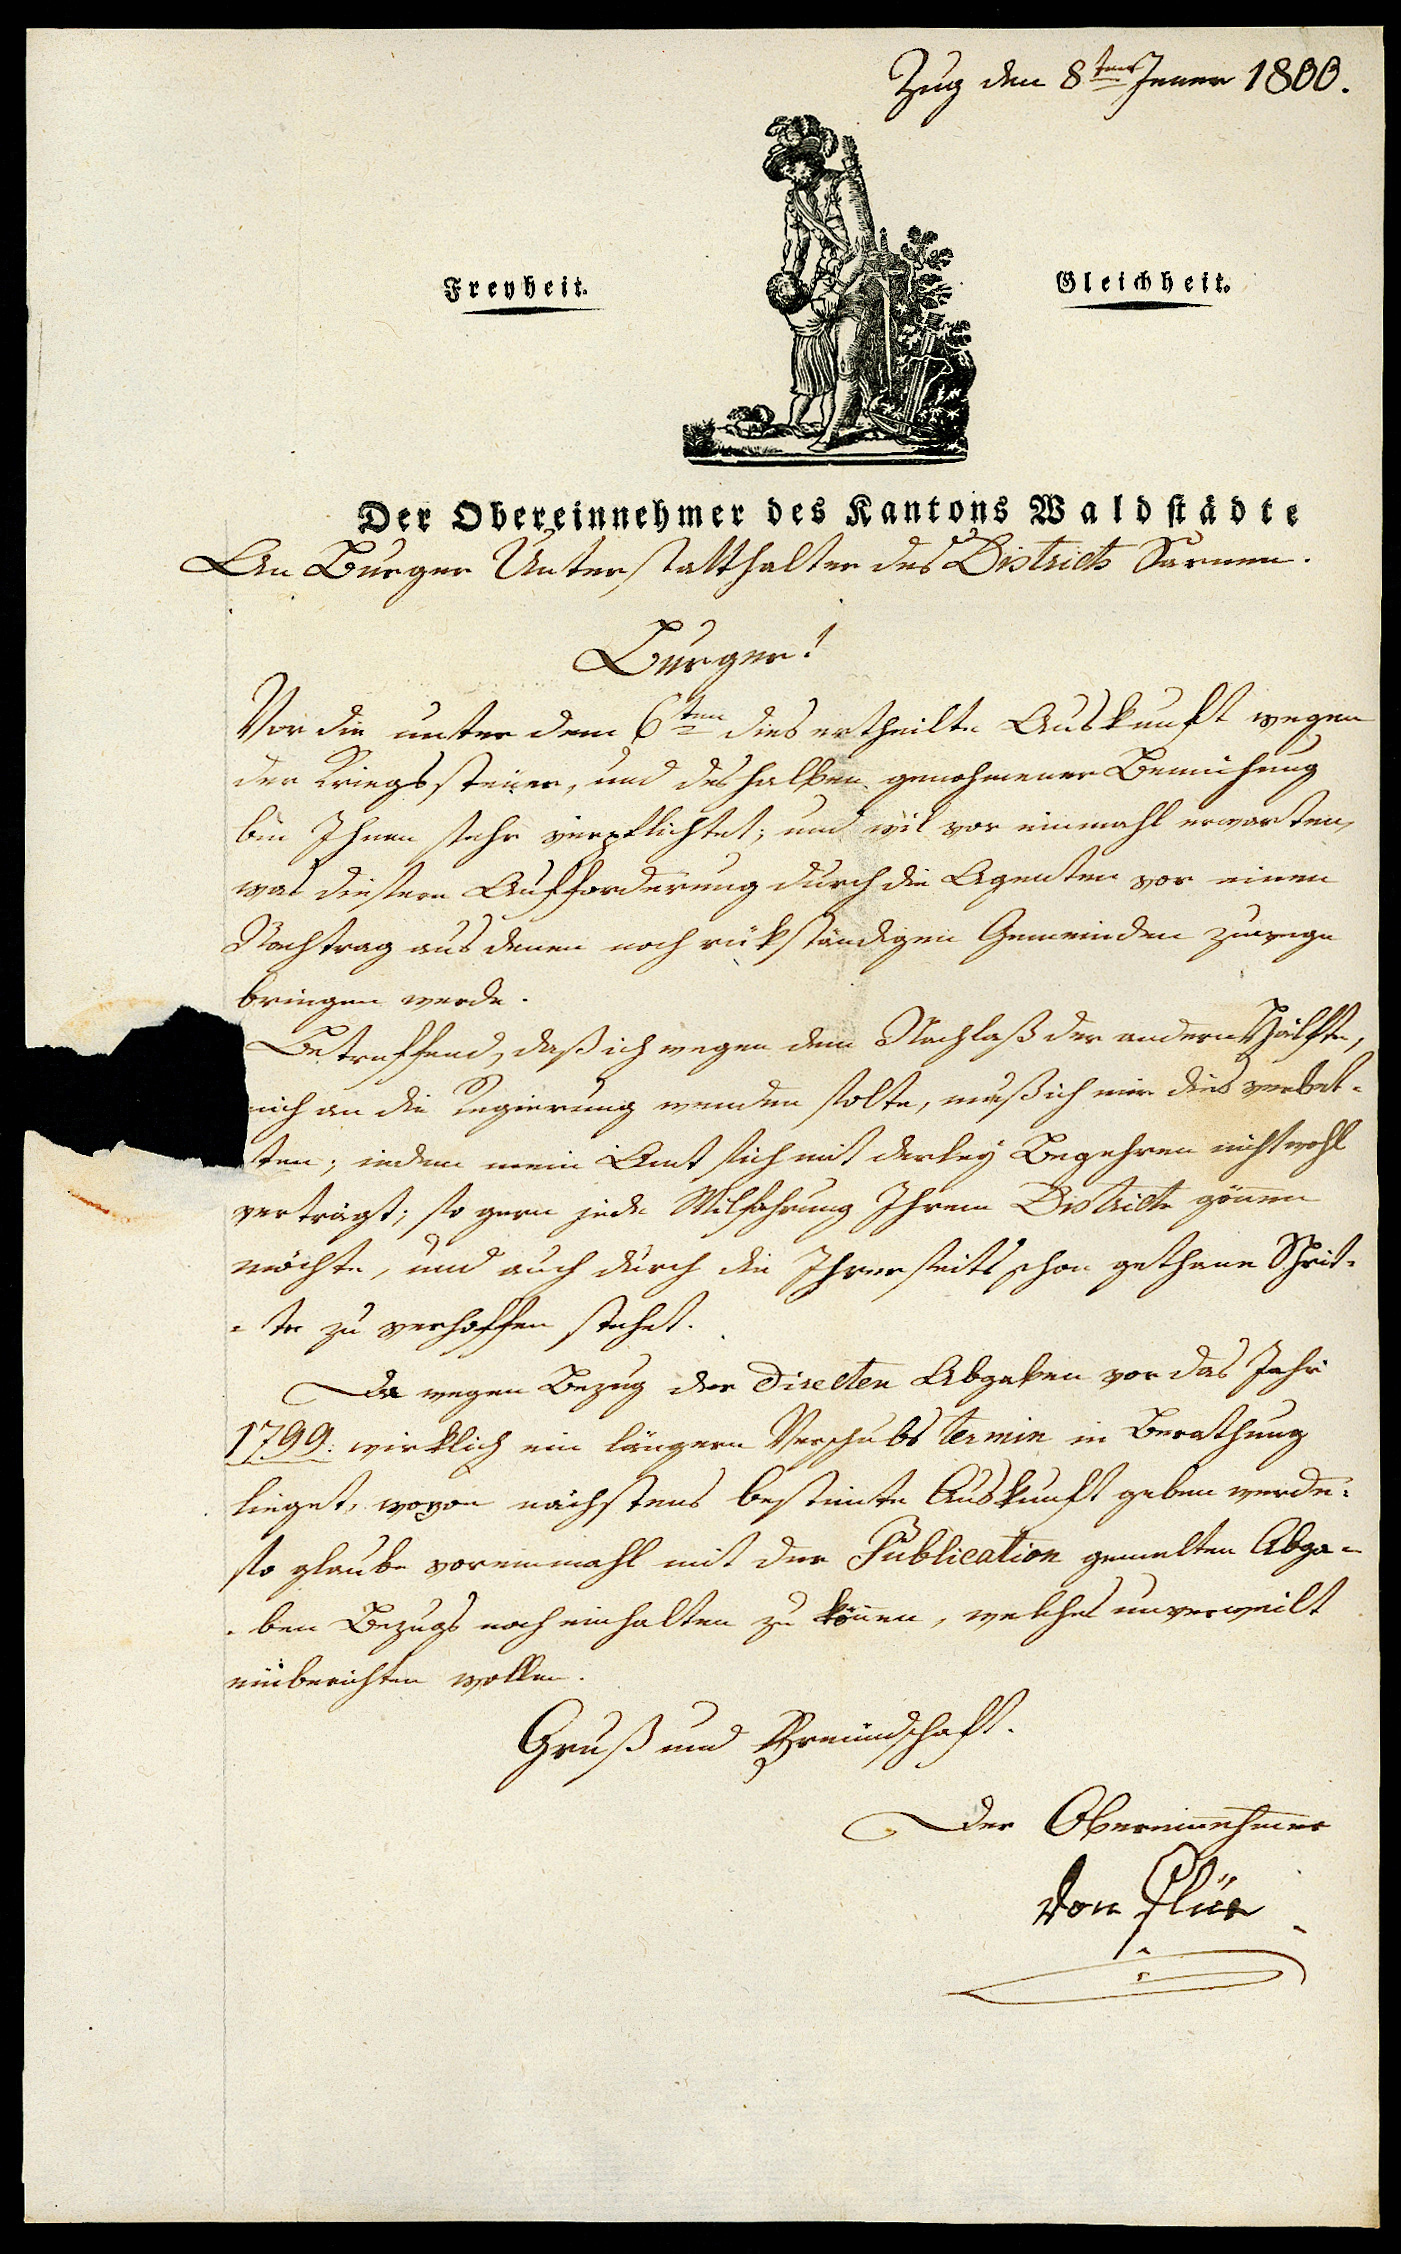 Zug den 8ten Jener 1800.
Freyheit.
Gleichheit.
Der Obereinnehmer des Kantons Waldstädte
An Burger Unterstatthalter des Districts Sarnen.
Burger!
Vor die unter dem 6ten dies ertheilte Auskunft wegen
der Kriegssteüer, und deshalben genohmener Bemühung
bin Ihnen sehr verpflichtet; und wil vor einmahl erwarten,
was diesere Aufforderung durch die Agenten vor einen
Nachtrag aus denen noch rükständigen Gemeinden zuwege
bringen werde.
Betreffend, daß ich wegen dem Nachlaß der andern Hälfte,
mich an die Regierung wenden solte, muß ich mir dies verbet-
ten; indem mein Amt sich mit derley Begehren nicht wohl
verträgt; so gern jede Wilfahrung Ihrem Districte gönnen
möchte, und auch durch die Ihrerseits schon gethane Schrit-
-te zu verhoffen stehet.
Da wegen Bezug der Directen Abgaben vor das Jahr
1799. wirklich ein längern Verschubs termin in Berathung
lieget, wovon nächstens bestimte Auskunft geben werde:
so glaube voreinmahl mit der Publication gemelten Abga-
-ben Bezugs noch einhalten zu können, welches unverweilt
einberichten wollen.
Gruß und Freündschaft.
Der Obereinnehmer
Von Flüe